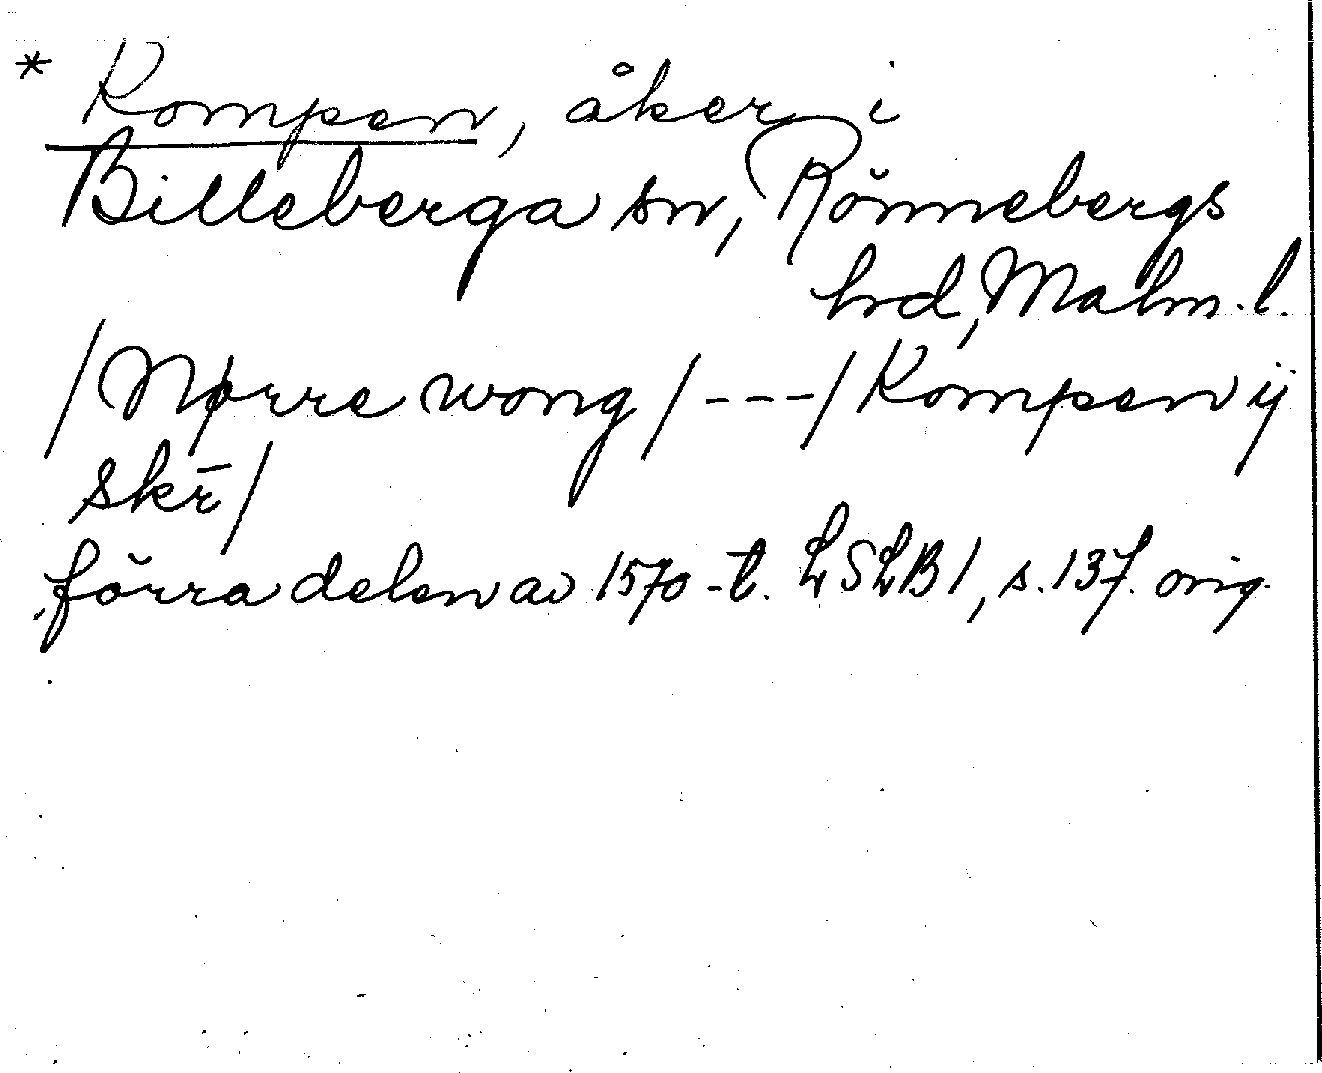 * Kompen, åker i
Billeberga sn, Rönnebergs
hd, Malm. l.
/Nørre wong/---/Kompen ij
skr̄/
förra delen av 1570-t. LSLB1, s. 137. orig.